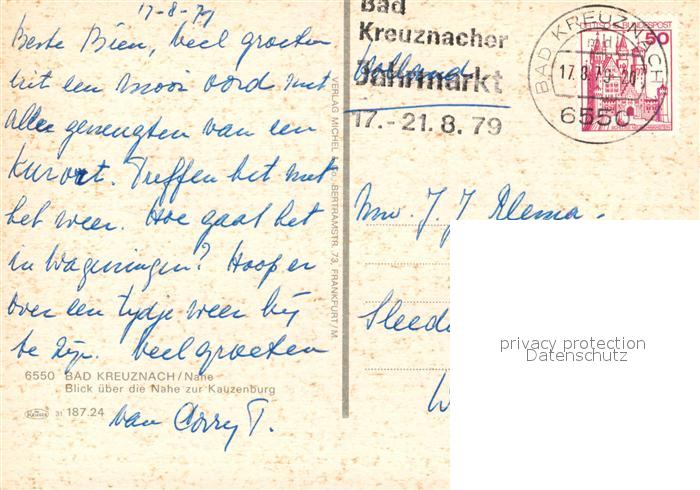 17-8-79
Beste Bien, veel groeten
uit een mooi oord met
alle geneugten van een
Kuroort. Treffen het met
het weer. Hoe gaat het
in Wageningen? Hoop er
over een tydje weer by
te zijn. Veel groeten
van Corry T.
6550 BAD KREUZNACH/Nahe
Blick über die Nahe zur Kauzenburg
31 187.24
VERLAG MICHEL BERTRAMSTR. 73, FRANKFURT/M.
Bad
Kreuznacher
Jahrmarkt
17.-21. 8. 79
Holland
BAD KREUZNACH
17.8.79-20
6550
DEUTSCHE BUNDESPOST
50
Mw. J. J.
privacy protection
Datenschutz